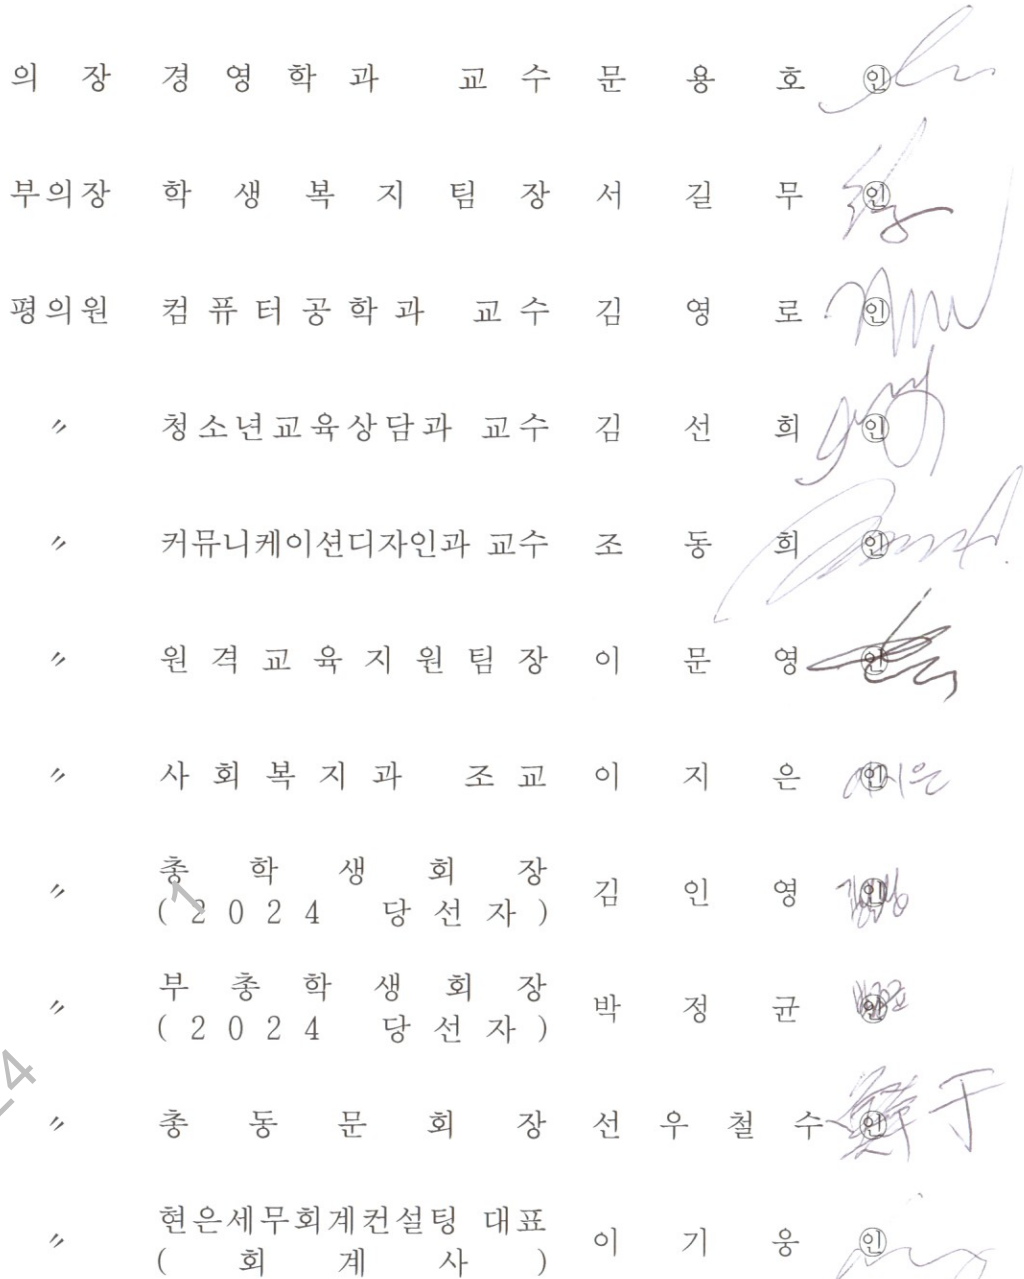 의 장 경 영 학 과 교 수 문 용 호 ㊞
부의장 학 생 복 지 팀 장 서 길 무 ㊞
평의원 컴퓨터공학과 교수 김 영 로 ㊞
〃 청소년교육상담과 교수 김 선 희 ㊞
〃 커뮤니케이션디자인과 교수 조 동 희 ㊞
〃 원 격 교 육 지 원 팀 장 이 문 영 ㊞
〃 사 회 복 지 과 조 교 이 지 은 ㊞ 이지은
〃 총 학 생 회 장
( 2 0 2 4 당 선 자 ) 김 인 영 ㊞
〃 부 총 학 생 회 장
( 2 0 2 4 당 선 자 ) 박 정 균 ㊞
〃 총 동 문 회 장 선 우 철 수 ㊞ 鮮于
〃 현은세무회계컨설팅 대표
( 회 계 사 ) 이 기 웅 ㊞